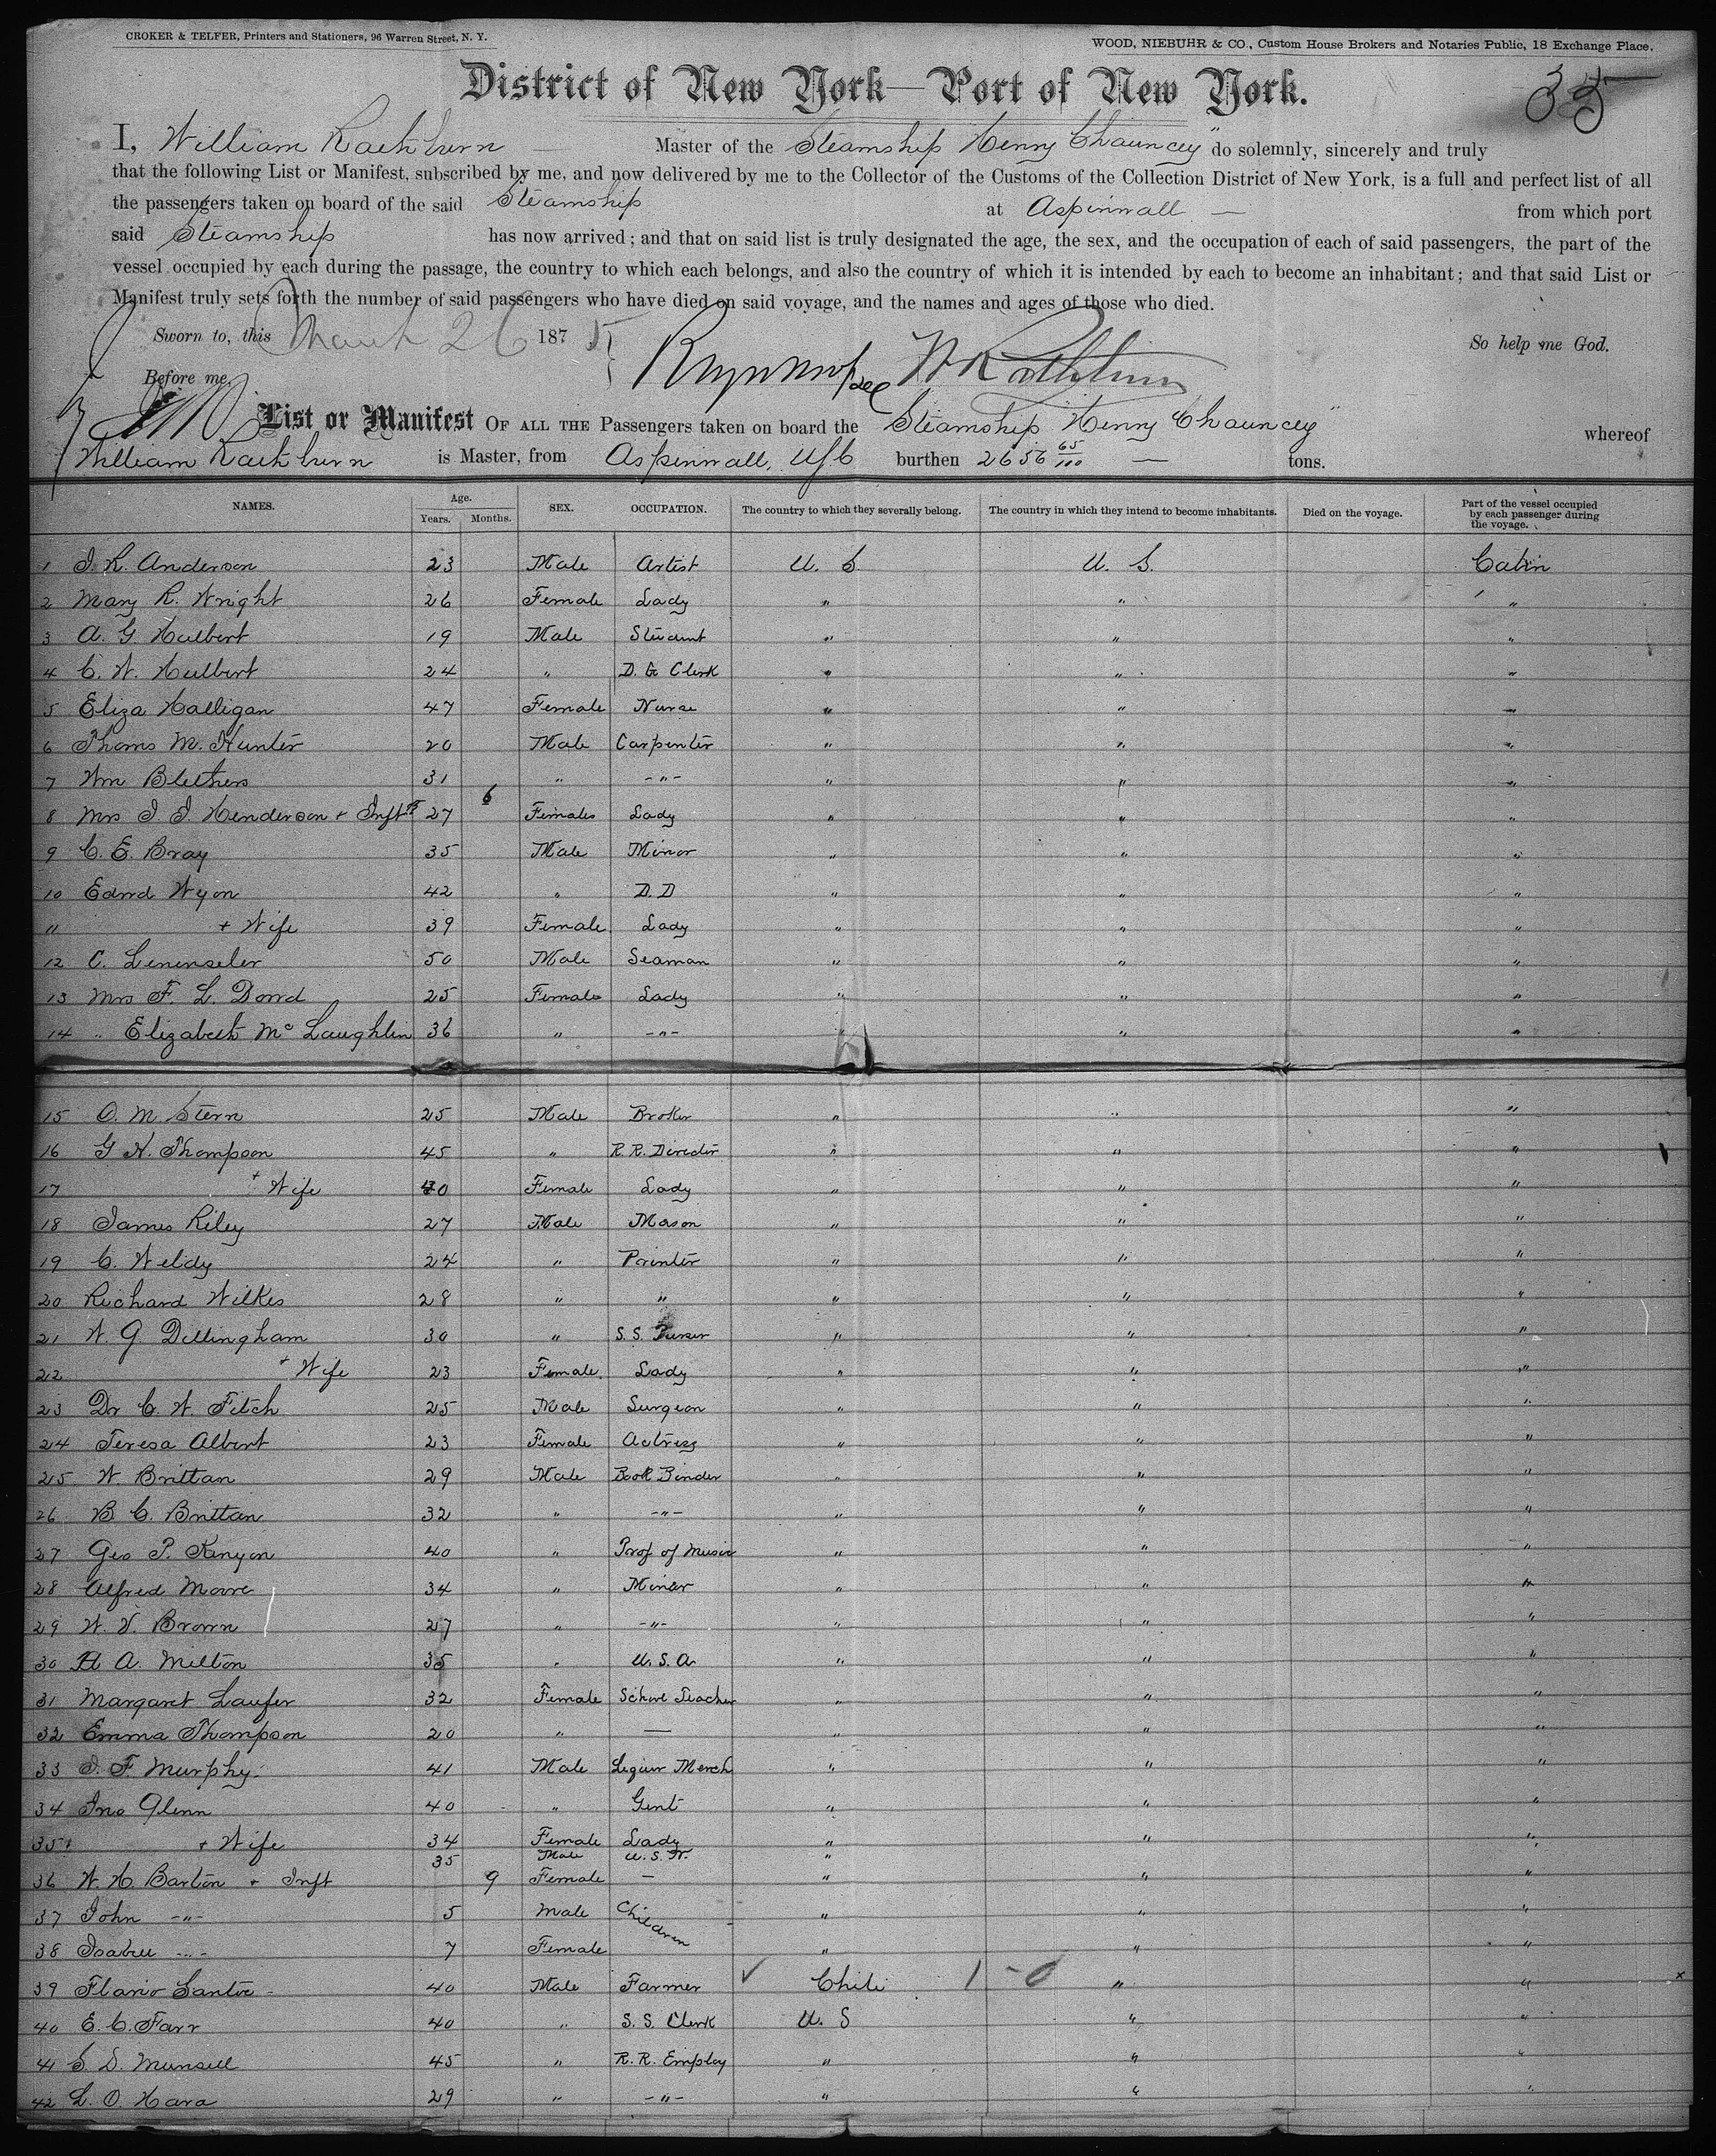 CROKER & TELFER, Printers and Stationers, 96 Warren Street, N. Y.
WOOD, NIEBUHR & CO., Custom House Brokers and Notaries Public, 18 Exchange Place.
District of New York—Port of New York.
35
I, William Rathburn Master of the Steamship Henny Chauncey" do solemnly, sincerely and truly
that the following List or Manifest, subscribed by me, and now delivered by me to the Collector of the Customs of the Collection District of New York, is a full and perfect list of all
the passengers taken on board of the said Steamship at Aspinwall — from which port
said Steamship has now arrived; and that on said list is truly designated the age, the sex, and the occupation of each of said passengers, the part of the
vessel occupied by each during the passage, the country to which each belongs, and also the country of which it is intended by each to become an inhabitant; and that said List or
Manifest truly sets forth the number of said passengers who have died on said voyage, and the names and ages of those who died.
Sworn to, this March 26 1875 So help me God.
Before me, W Rathburn
List or Manifest OF ALL THE Passengers taken on board the Steamship "Henny Chauncey" whereof
William Rathburn is Master, from Aspinwall, USC burthen 2656 65/100 — tons.
NAMES. Age. Years. Months. SEX. OCCUPATION. The country to which they severally belong. The country in which they intend to become inhabitants. Died on the voyage. Part of the vessel occupied by each passenger during the voyage.
1 J. R. Anderson 23 Male Artist U. S. U. S. Cabin
2 Mary R. Wright 26 Female Lady " " "
3 A. G Hulbert 19 Male Student " " "
4 C. W. Hulbert 24 " D. G Clerk " " "
5 Eliza Halligan 47 Female Nurse " " "
6 Thoms M. Hunter 20 Male Carpenter " " "
7 Wm Blethers 31 " -"- " " "
8 Mrs J. J. Henderson + Inft 27 6 Females Lady " " "
9 C. E. Bray 35 Male Minor " " "
10 Edwd Wyon 42 " D. D " " "
" + Wife 39 Female Lady " " "
12 C. Leninseler 50 Male Seaman " " "
13 Mrs F. L. Dowd 25 Female Lady " " "
14 " Elizabeth Mc Laughlin 36 " -"- " " "
15 O. M. Stern 25 Male Broker " " "
16 G W. Thompson 45 " R. R. Director " " "
17 + Wife 40 Female Lady " " "
18 James Riley 27 Male Mason " " "
19 C. Weldy 24 " Painter " " "
20 Richard Wilkes 28 " " " " "
21 W. G. Dillingham 30 " S. S. Purser " " "
22 + Wife 23 Female Lady " " "
23 Dr C. W. Fitch 25 Male Surgeon " " "
24 Teresa Albert 23 Female Actress " " "
25 W. Brittan 29 Male Book Binder " " "
26 B. C. Brittan 32 " -"- " " "
27 Geo P. Kenyon 40 " Prof of Music " " "
28 Alfred Moore 34 " Miner " " "
29 W. V. Brown 27 " -"- " " "
30 H A. Milton 35 " U. S. A. " " "
31 Margaret Laufer 32 Female School Teacher " " "
32 Emma Thompson 20 " — " " "
33 J. F. Murphy 41 Male Liquor Merch " " "
34 Jno Glenn 40 " Gent " " "
35 + Wife 34 Female Lady " " "
35 Male U. S. N. "
36 W. H. Barton + Inft 9 Female — " " "
37 John -"- 5 Male Children " " "
38 Isabell -"- 7 Female " " "
39 Flavio Santoe 40 Male Farmer ✓ Chili 1 - 0 " " x
40 E. C. Farr 40 " S. S. Clerk U. S " "
41 S. D. Munsell 45 " R. R. Employ " " "
42 L. O. Hara 29 " -"- " " "